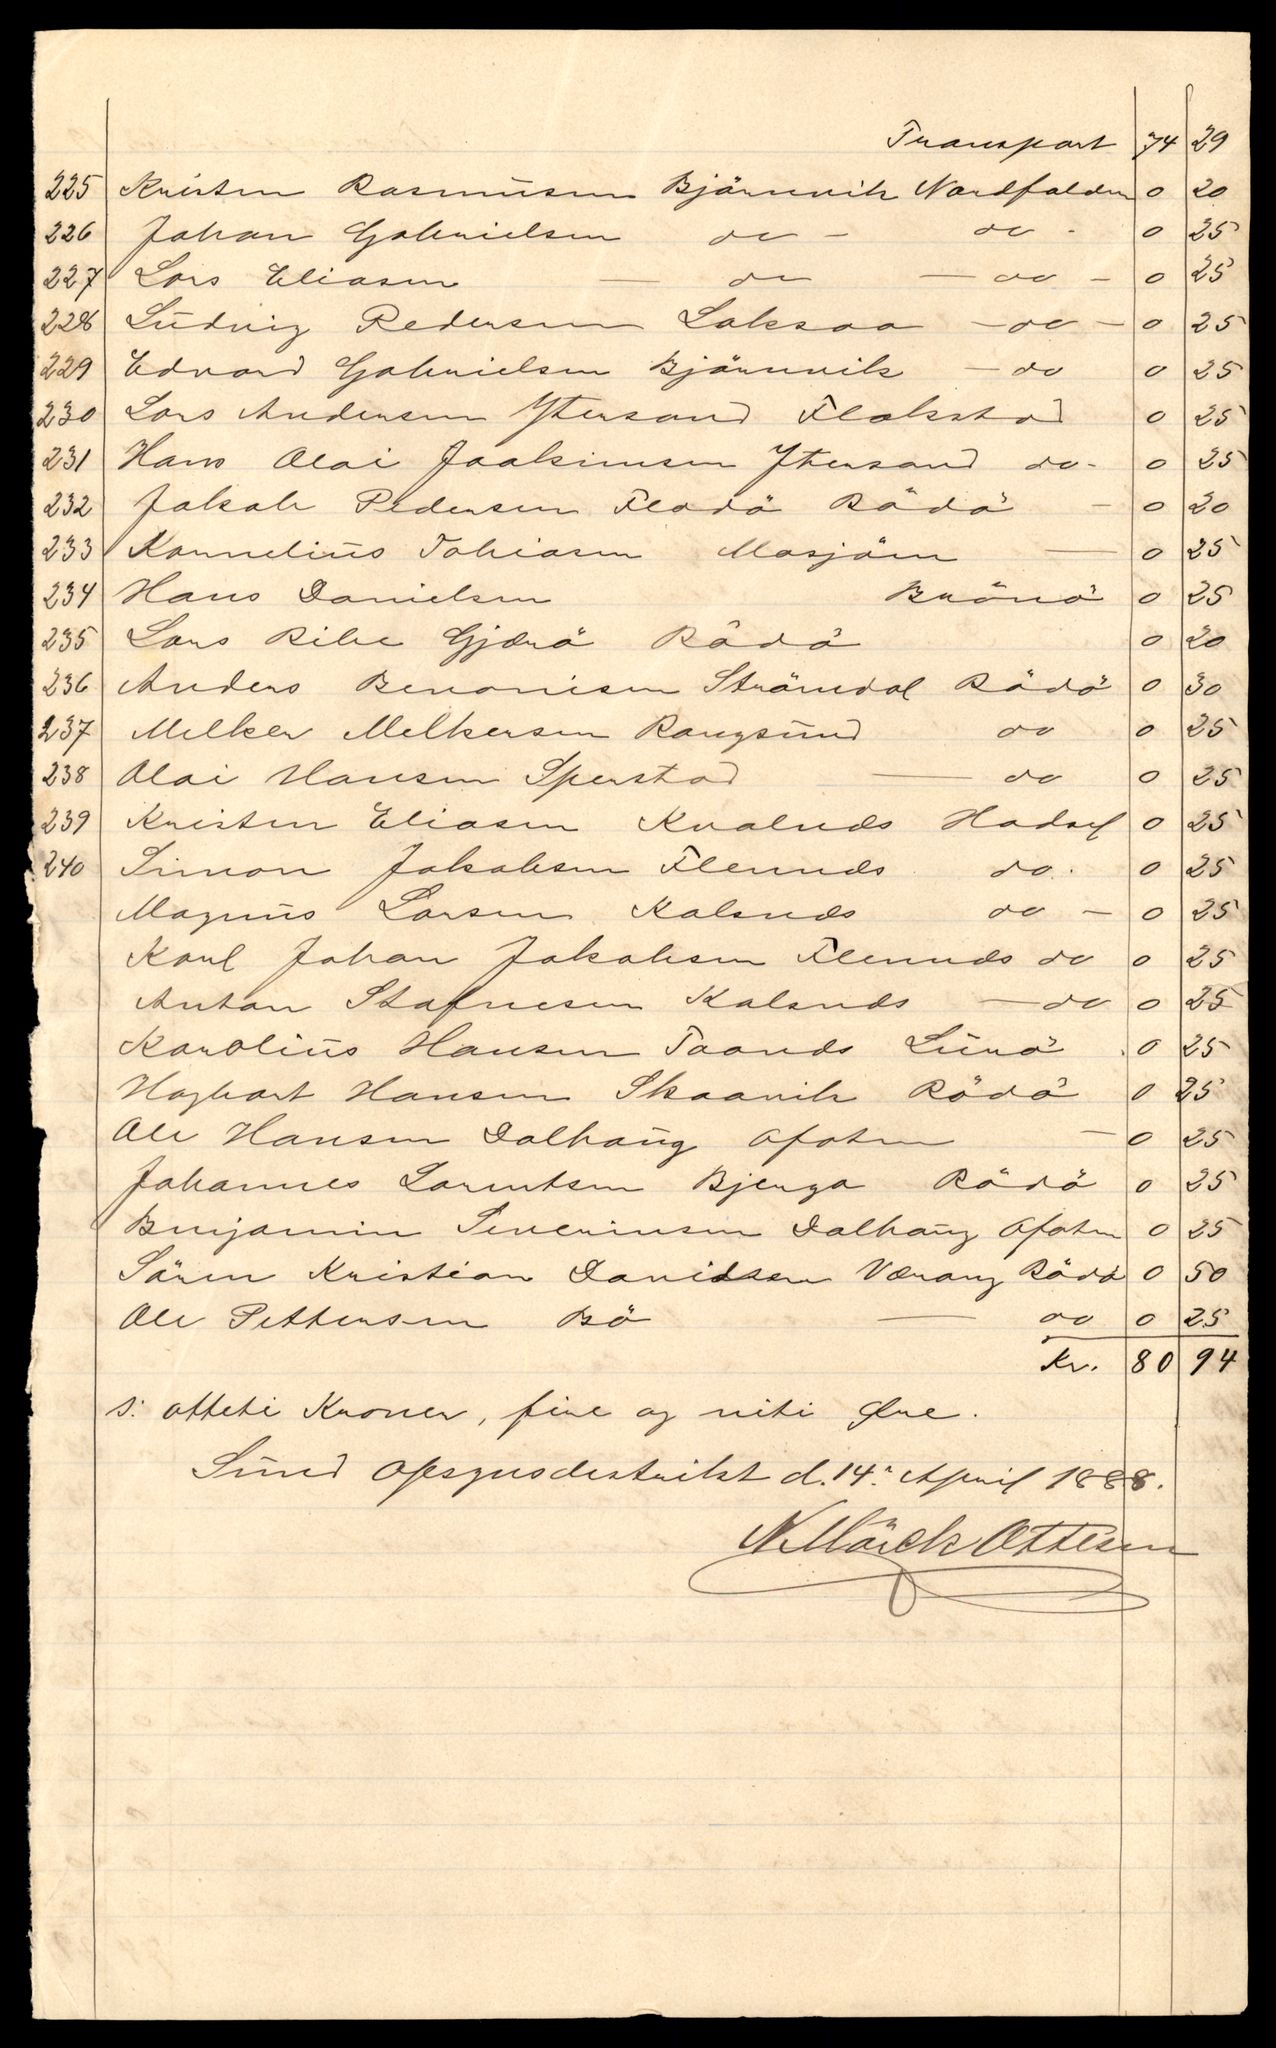 Transport 74 29
225 Kristen Rasmussen Bjärnvik Nordfolden 0 20
226 Johan Gabrielsen do - do - 0 25
227 Lars Eliasen — do — do - 0 25
228 Ludvig Pedersen Laksaa - do - 0 25
229 Edvard Gabrielsen Bjärnvik - do 0 25
230 Lars Andersen Ytersand Flakstad 0 25
231 Hans Olai Joakimsen Ytersand do - 0 25
232 Jakob Pedersen Flodö Rödö - 0 20
233 Kornelius Tobiasen Mosjöen — 0 25
234 Hans Danielsen Brönö 0 25
235 Lars Ribe Gjærö Rödö 0 20
236 Anders Benonisen Strömdal Rödö 0 30
237 Melker Melkersen Rangsund do 0 25
238 Olai Hansen Sperstad — do 0 25
239 Kristen Eliasen Kvalnds Hadsel 0 25
240 Simon Jakobsen Flennds do. 0 25
Magnus Larsen Kalsnds do - 0 25
Karl Johan Jakobsen Flennds do 0 25
Anton Stafnesen Kalsnds — do 0 25
Karolius Hansen Taands Lurö 0 25
Hagbart Hansen Skaanvik Rödö 0 25
Ole Hansen Dalhaug Ofoten — 0 25
Johannes Lorentsen Bjerga Rödö 0 25
Benjamin Severinsen Dalhaug Ofoten 0 25
Sören Kristian Davidsen Værang Rödö 0 50
Ole Pettersen Bö — do 0 25
Kr. 80 94
s: otteti Kroner, fire og niti Øre.
Sund Opsynsdestrikt d. 14: April 1888.
N. Mörck Ottesen